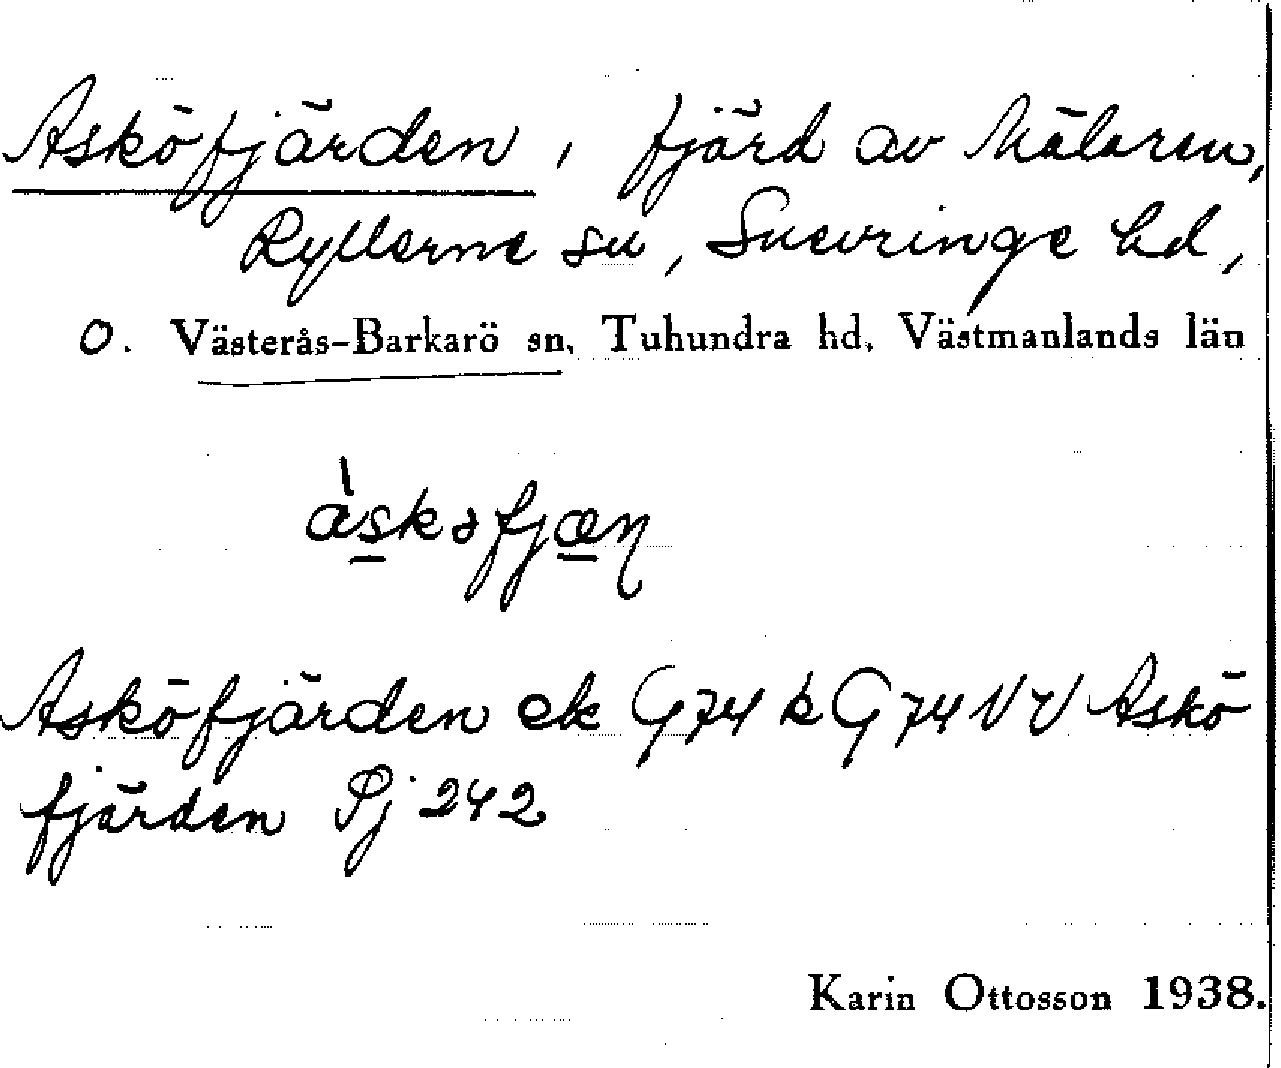 Asköfjärden, fjärd av Mälaren,
Ryllerne sn, Snevringe hd,
o. Västerås-Barkarö sn, Tuhundra hd, Västmanlands län
Asköfjärden ek G 74 k G 74 NV Askö
fjärden Pj 242
Karin Ottosson 1938.